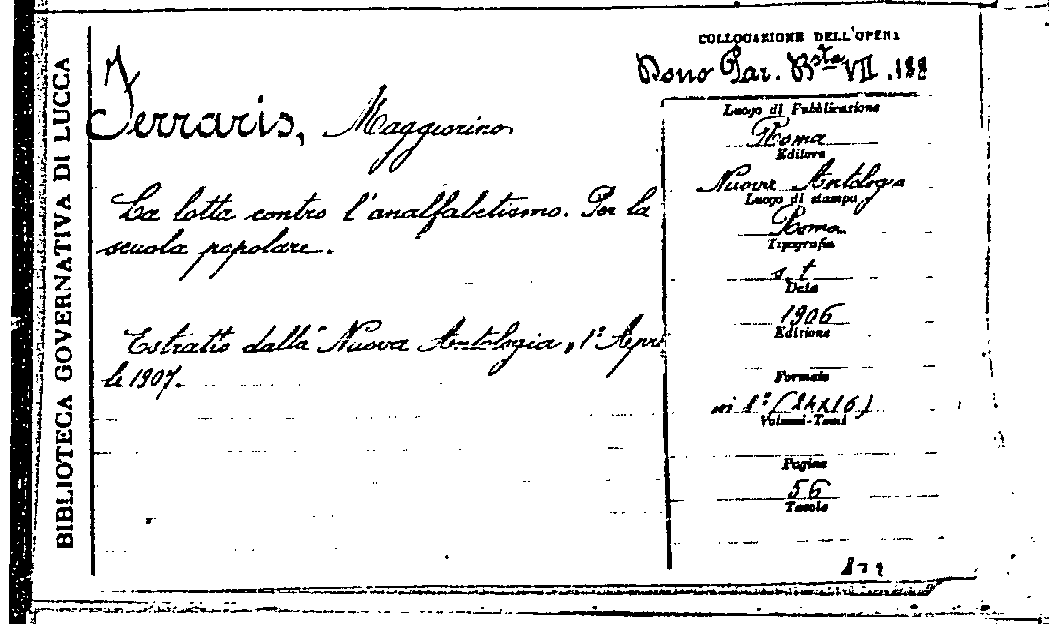 BIBLIOTECA GOVERNATIVA DI LUCCA
COLLOCAZIONE DELL'OPERA
Dono Par. Bsta VII. 188
Ferraris, Maggiorino
La lotta contro l'analfabetismo. Per la
scuola popolare.
Estratto dalla "Nuova Antologia, 1º Apri
le 1907.
Luogo di Pubblicazione
Roma
Editore
Nuova Antologia
Luogo di stampa
Roma
Tipografia
s. t
Data
1906
Edizione
Formato
in 8º (24x16)
Volumi-Tomi
Pagine
56
Tavole